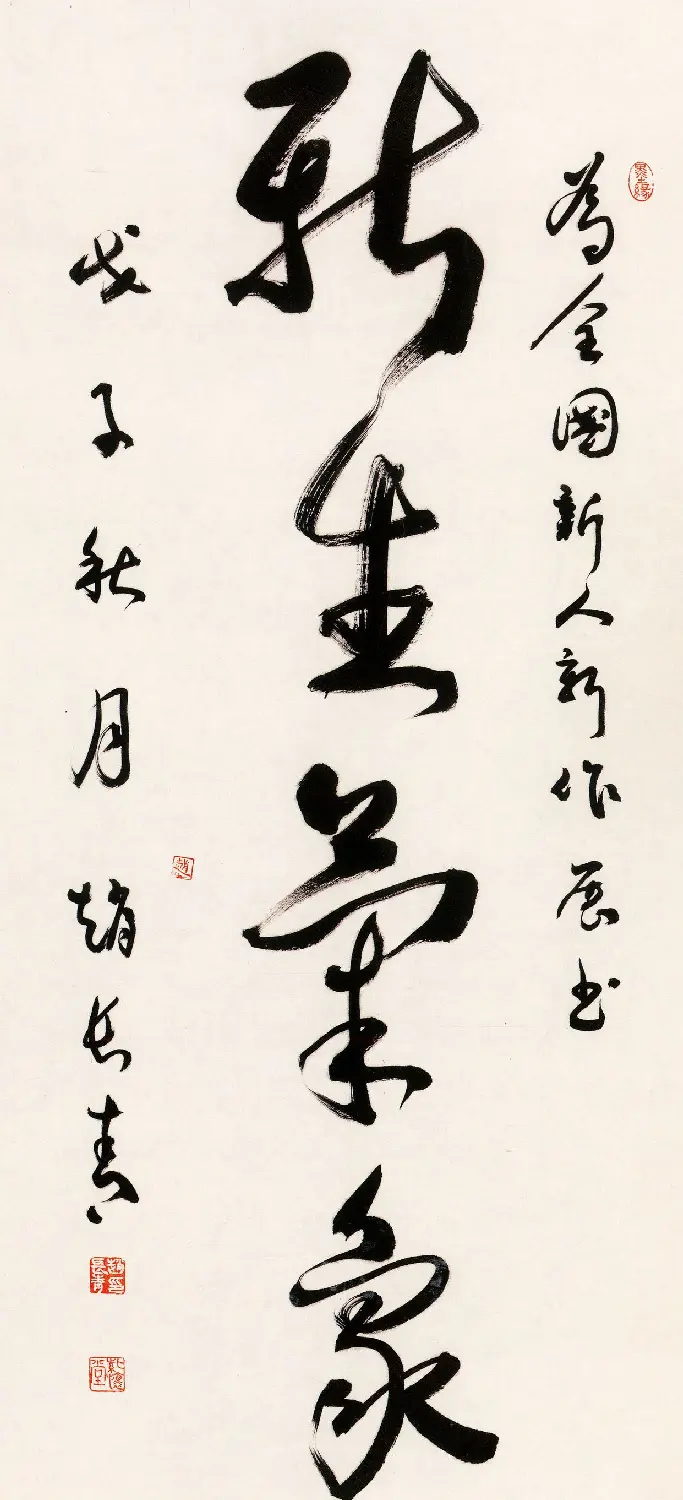 為全國新人新作展书
新生氣象
戊子秋月趙长青
趙
趙長青印